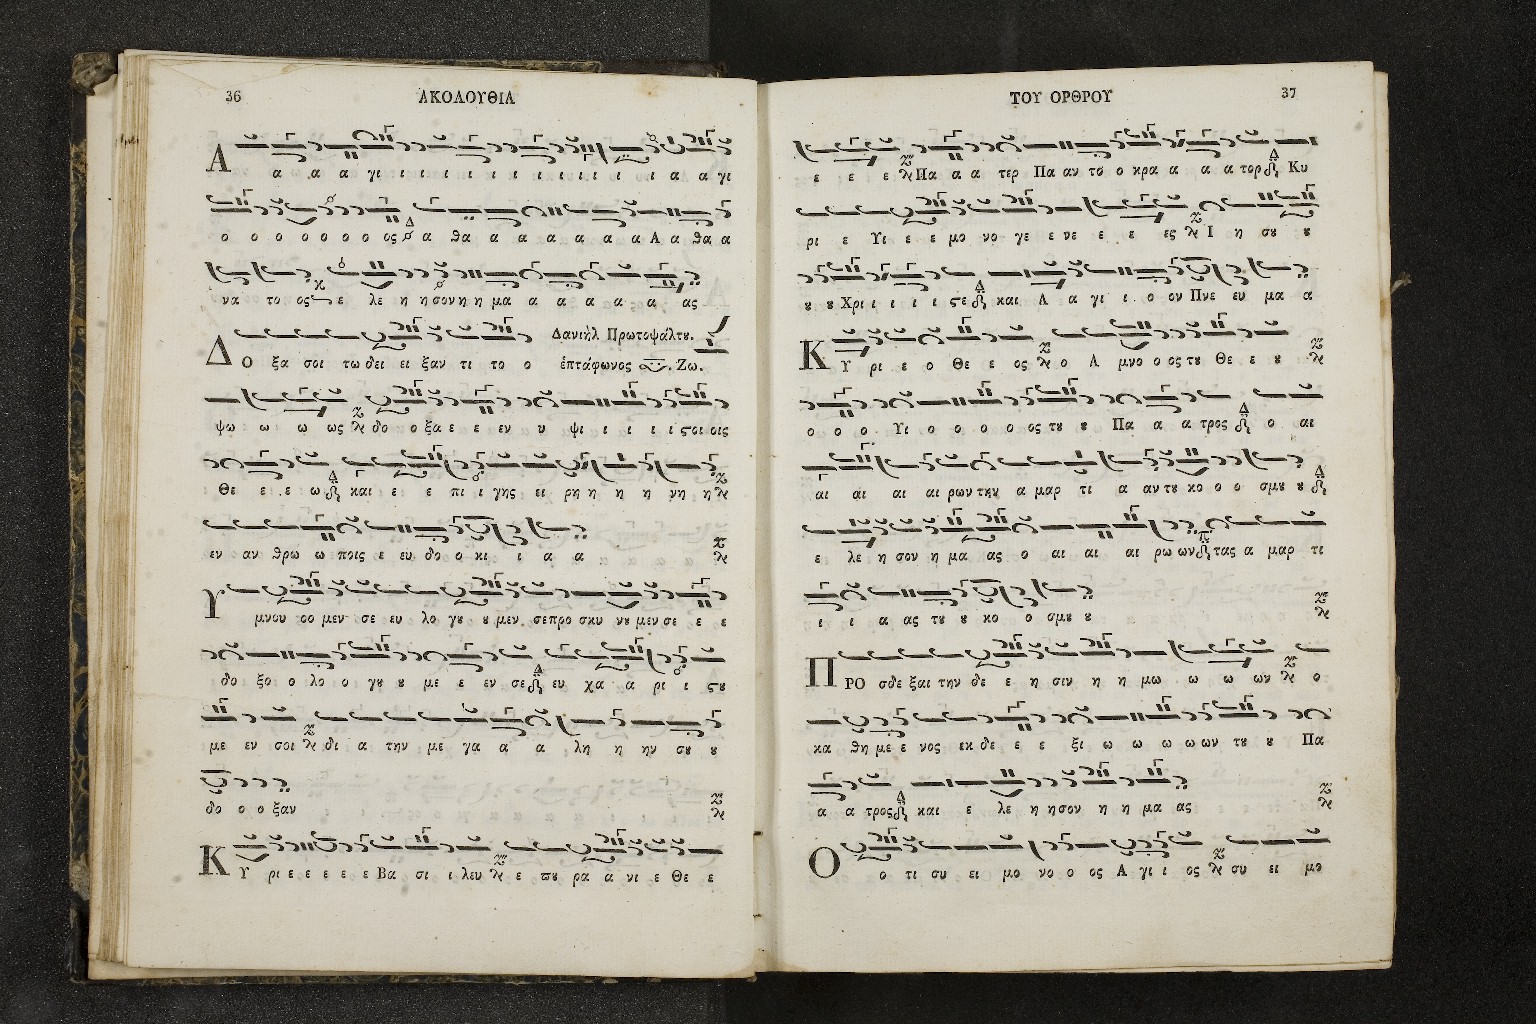 36 ΑΚΟΛΟΥΘΙΑ
Α α α α γι ι ι ι ι ι ι ι ι ι ι ι ι ι α α γι
ο ο ο ο ο ο ο ο ος α θα α α α α α α Α α θα α
να το ος ε λε η η σον η η μα α α α α α ας
Δανιὴλ Πρωτοψάλτου.
Δ Ο ξα σοι τω δει ει ξαν τι το ο ἑπτάφωνος Ζω.
φω ω ω ως δο ο ξα ε ε εν υ ψι ι ι ι ι ςοι οις
Θε ε ε ω και ε ε πι ι γης ει ρη η η η νη η
εν αν θρω ω ποις ε ευ δο ο κι ι α α
Υ μνου ου μεν σε ευ λο γου ου μεν σε προ σκυ νου μεν σε ε ε
δο ξο ο λο ο γου ου με ε εν σε ευ χα α ρι ι ςου
με εν σοι δι α την με γα α α λη η ην σου ου
δο ο ο ξαν
Κ Υ ρι ε ε ε ε ε Βα σι ι λευ ε που ρα α νι ε Θε ε
ΤΟΥ ΟΡΘΡΟΥ 37
ε ε ε Πα α α τερ Πα αν το ο κρα α α α τορ Κυ
ρι ε Υι ε ε μο νο γε ε νε ε ε ες Ι η σου ου
ου ου Χρι ι ι ι ι ςε και Α α γι ι ο ον Πνε ευ μα α
Κ Υ ρι ε ο Θε ε ος ο Α μνο ο ος του Θε ε ου
ο ο ο Υι ο ο ο ο ος του ου Πα α α τρος ο αι
αι αι αι αι ρων την α μαρ τι α αν του κο ο ο σμου ου
ε λε η σον η μα ας ο αι αι αι ρω ων τας α μαρ τι
ι ι α ας του ου κο ο σμου ου
Π ΡΟ σδε ξαι την δε ε η σιν η η μω ω ω ων ο
κα θη με ε νος εκ δε ε ε ξι ω ω ω ω ων του ου Πα
α α τρος και ε λε η η σον η η μα ας
Ο ο τι συ ει μο νο ο ος Α γι ι ος συ ει μο